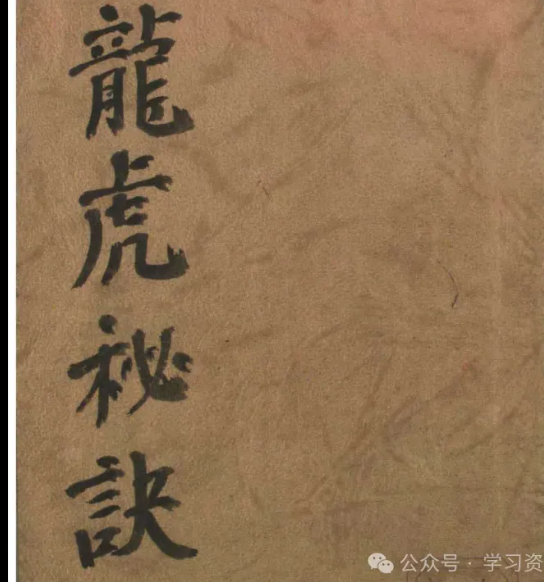 龍虎秘訣
公众号·学习资